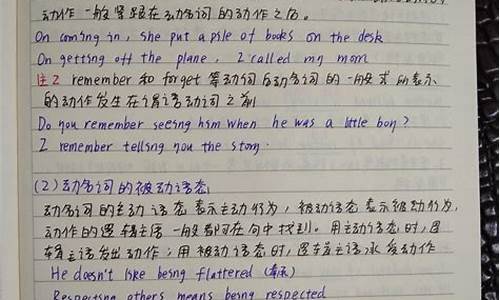 动作一般紧跟在动名词的动作之后。
On coming in, she put a pile of books on the desk
On getting off the plane, I called my mom
注2 remember 和 forget 等动词后动名词的一般式所表示
的动作发生在谓语动词之前
Do you remember seeing him when he was a little boy?
I remember telling you the story.
(2) 动名词的被动语态
动名词的主动语态表示主动行为，被动语态表示被动行为，
动作的逻辑主语一般都可在句中找到。用主动语态时，逻
辑主语发出动作；用被动语态时，逻辑主语承受动作
He doesn't like being flattered (奉承)
Respecting others means being respected